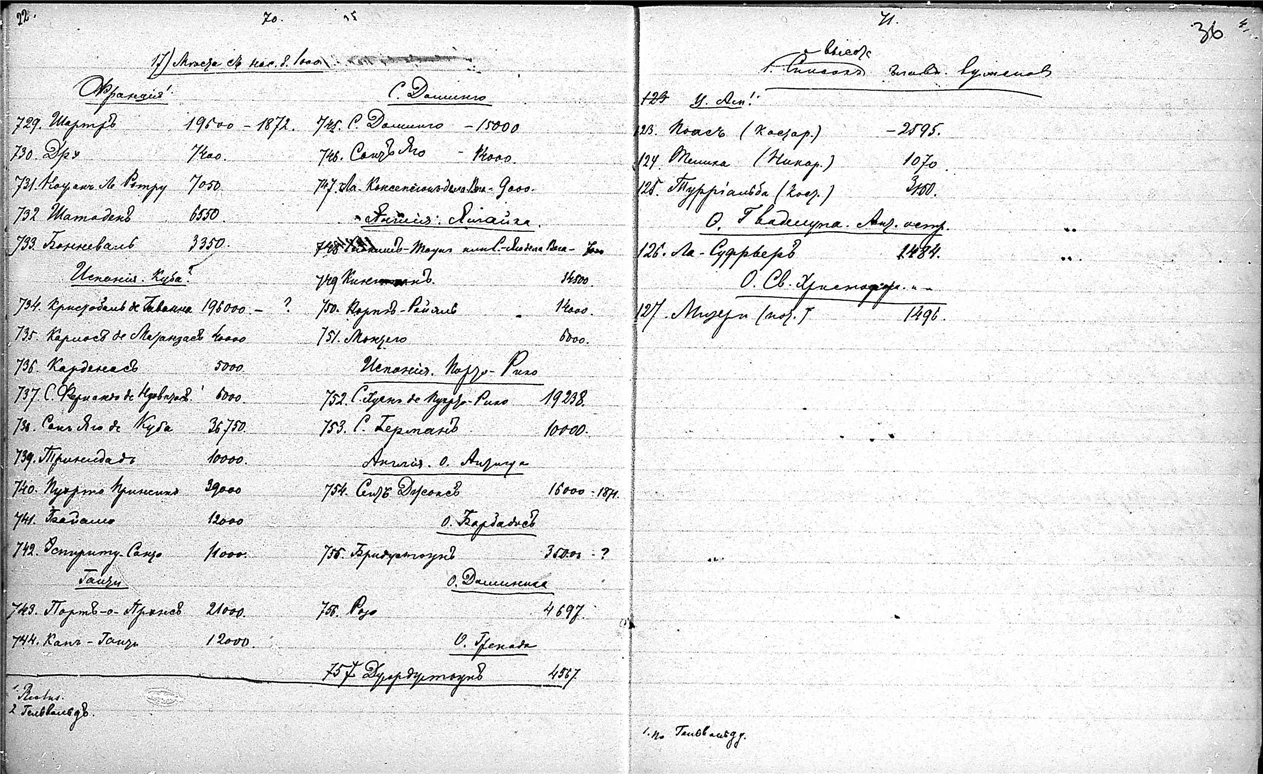 22.
70.
17) Места съ нас. 8. 1000
Франція.¹
729. Шартръ 19500 – 1872.
730. Дрэ 7400.
731. Ножанъ Ле Ротру 7050.
732. Шатоденъ 6550.
733. Бонневаль 3350.
Испанія. Куба.²
734. Кристобаль де Гаванна 196000. – ?
735. Карлосъ де Матанзасъ
736. Карденасъ 5000
737. С. Фернандо де 6000
738. Санъ Яго де Куба 36750.
739. Тринидадъ 10000.
740. Пуэрто Принсипе 39000
741. Баямо 12000
742. Эспириту Санто 11000.
Гаити
743. Портъ-о-Пренсъ 21000.
744. Капъ-Гаити 12000.
1
2 Гельвальдъ
С. Доминго
745. С. Доминго – 15000
746. Санъ Яго – 12000
747. Ла. Консепсіонъ де ла Вега – 9000.
Англія. Ямайка.
748. -Тоунъ или С. Яго де ла Вега – 7000
749 Кингстонъ. 34500.
750. Портъ-Ройяль 14000.
751. Монтего 6000.
Испанія. Порто-Рико
752. С. Хуанъ де Пуэрто-Рико 19238.
753. С. Германъ 10000.
Англія. О. Антигуа
754. Сентъ Джонсъ 16000 – 1871.
О. Барбадосъ
755. Бриджтоунъ 35000 – ?
О. Доминика
756. Розо 4697.
О. Гренада
757 Джорджтоунъ 4567.
71.
36
высот
1. Списокъ главн. вулкановъ
123 Ц. Ам.¹
123. Поасъ (Костар.) – 2595.
124. Телика (Никар.) 1070.
125. Турріальба (Кост.) 3450.
О. Гваделупа. Ант. остр.
126. Ла-Суфрьеръ 1484.
О. Св. Христофора. "–
127. Мизери (пот.) 1496.
1. по Гельвальду.